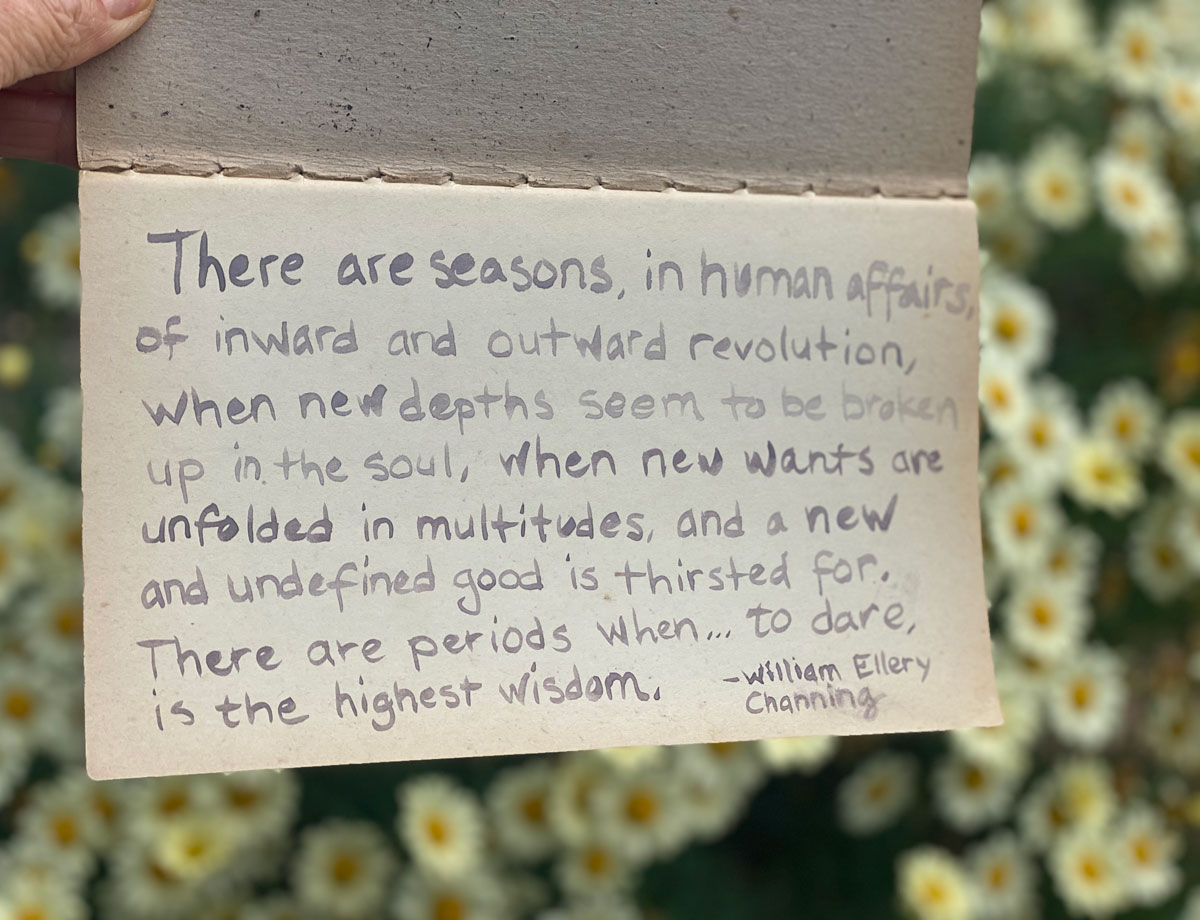 There are seasons, in human affairs,
of inward and outward revolution,
when new depths seem to be broken
up in the soul, when new wants are
unfolded in multitudes, and a new
and undefined good is thirsted for.
There are periods when... to dare,
is the highest wisdom.
-William Ellery
Channing